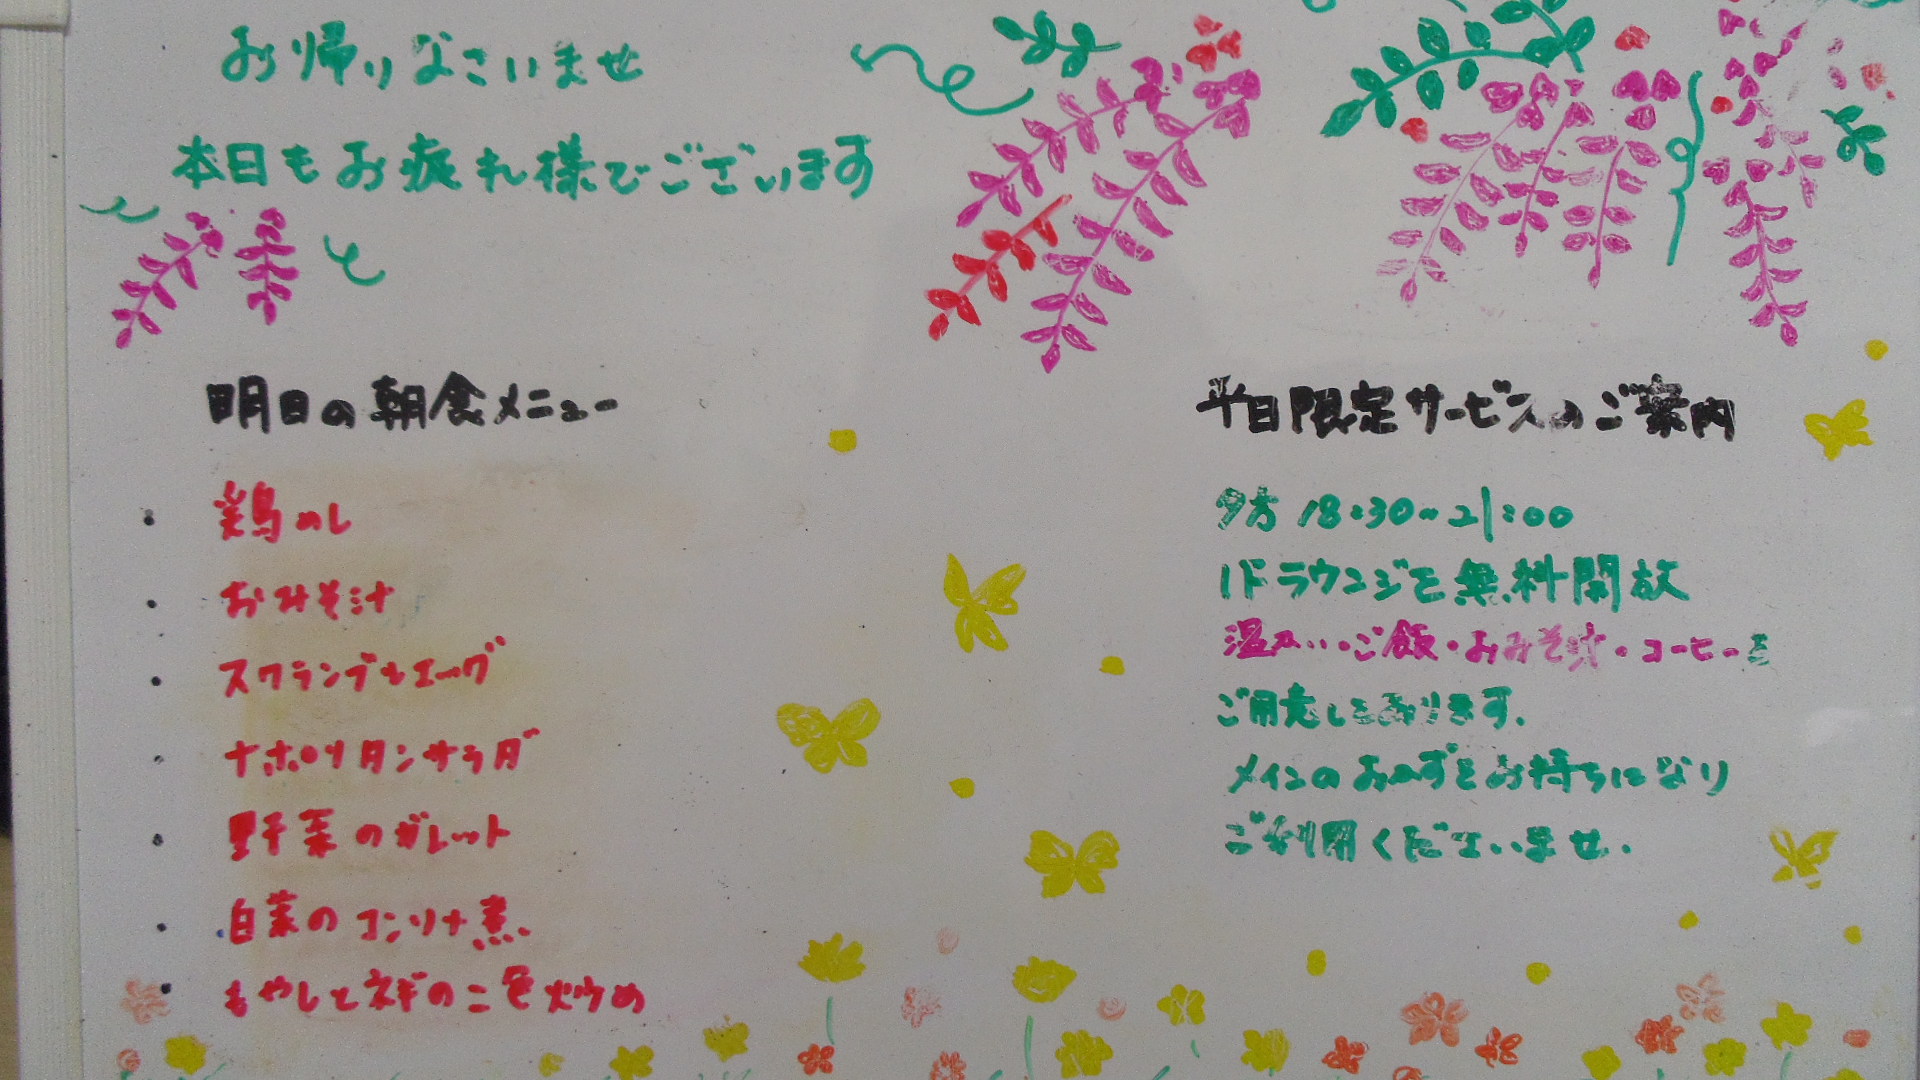 お帰りなさいませ
本日もお疲れ様でございます
明日の朝食メニュー
・鶏めし
・おみそ汁
・スクランブルエッグ
・ナポリタンサラダ
・野菜のガレット
・白菜のコンソメ煮
・もやしとネギの二色炒め
平日限定サービスのご案内
夕方 18:30~21:00
1Fラウンジを無料開放
温かいご飯・おみそ汁・コーヒーを
ご用意しております。
メインのおかずをお持ちになり
ご利用くださいませ.